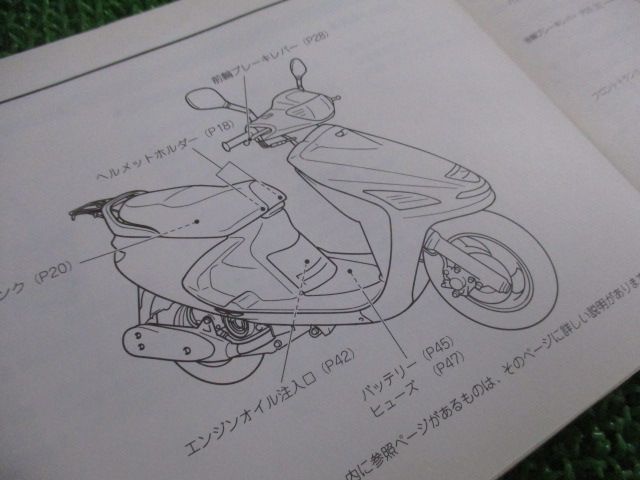 前輪ブレーキレバー (P28)
ヘルメットホルダー (P18)
ンク (P20)
エンジンオイル注入口 (P42)
バッテリー (P45)
ヒューズ (P47)
内に参照ページがあるものは、そのページに詳しい説明がありま